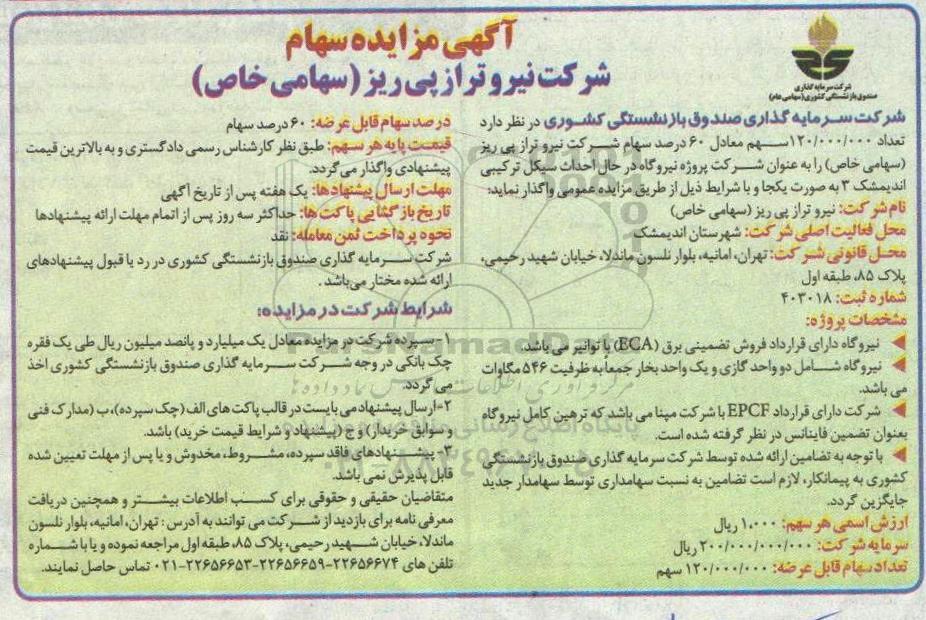 آگهی مزایده سهام
شرکت نیرو تراز پی ریز (سهامی خاص)
شرکت سرمایه گذاری
صندوق بازنشستگی کشوری (سهامی عام)
شرکت سرمایه گذاری صندوق بازنشستگی کشوری در نظر دارد
تعداد ۱۲۰/۰۰۰/۰۰۰سهم معادل ۶۰ درصد سهام شرکت نیرو تراز پی ریز
(سهامی خاص) را به عنوان شرکت پروژه نیروگاه در حال احداث سیکل ترکیبی
اندیمشک ۳ به صورت یکجا و با شرایط ذیل از طریق مزایده عمومی واگذار نماید:
نام شرکت: نیرو تراز پی ریز (سهامی خاص)
محل فعالیت اصلی شرکت: شهرستان اندیمشک
محل قانونی شرکت: تهران، امانیه، بلوار نلسون ماندلا، خیابان شهید رحیمی،
پلاک ۸۵، طبقه اول
شماره ثبت: ۴۰۳۰۱۸
مشخصات پروژه:
نیروگاه دارای قرارداد فروش تضمینی برق (ECA) با توانیر می باشد.
نیروگاه شامل دو واحد گازی و یک واحد بخار جمعا به ظرفیت ۵۴۶ مگاوات
می باشد.
شرکت دارای قرارداد EPCF با شرکت مپنا می باشد که ترهین کامل نیروگاه
بعنوان تضمین فاینانس در نظر گرفته شده است.
با توجه به تضامین ارائه شده توسط شرکت سرمایه گذاری صندوق بازنشستگی
کشوری به پیمانکار، لازم است تضامین به نسبت سهامداری توسط سهامدار جدید
جایگزین گردد.
ارزش اسمی هر سهم: ۱،۰۰۰ ریال
سرمایه شرکت: ۲۰۰/۰۰۰/۰۰۰/۰۰۰ ریال
تعداد سهام قابل عرضه: ۱۲۰/۰۰۰/۰۰۰ سهم
درصد سهام قابل عرضه: ۶۰ درصد سهام
قیمت پایه هر سهم: طبق نظر کارشناس رسمی دادگستری و به بالاترین قیمت
پیشنهادی واگذار می گردد.
مهلت ارسال پیشنهادها: یک هفته پس از تاریخ آگهی
تاریخ بازگشایی پاکت ها: حداکثر سه روز پس از اتمام مهلت ارائه پیشنهادها
نحوه پرداخت ثمن معامله: نقد
شرکت سرمایه گذاری صندوق بازنشستگی کشوری در رد یا قبول پیشنهادهای
ارائه شده مختار می باشد.
شرایط شرکت در مزایده:
۱- سپرده شرکت در مزایده معادل یک میلیارد و پانصد میلیون ریال طی یک فقره
چک بانکی در وجه شرکت سرمایه گذاری صندوق بازنشستگی کشوری اخذ
می گردد.
۲-ارسال پیشنهاد می بایست در قالب پاکت های الف (چک سپرده)، ب (مدارک فنی
و سوابق خریدار) و ج (پیشنهاد و شرایط قیمت خرید) باشد.
۳- پیشنهادهای فاقد سپرده، مشروط، مخدوش و یا پس از مهلت تعیین شده
قابل پذیرش نمی باشد.
متقاضیان حقیقی و حقوقی برای کسب اطلاعات بیشتر و همچنین دریافت
معرفی نامه برای بازدید از شرکت می توانند به آدرس: تهران، امانیه، بلوار نلسون
ماندلا، خیابان شهید رحیمی، پلاک ۸۵، طبقه اول مراجعه نموده و یا با شماره
تلفن های ۲۲۶۵۶۶۷۴-۲۲۶۵۶۶۵۹-۲۲۶۵۶۶۵۳-۰۲۱ تماس حاصل نمایند.
ParsNamadData